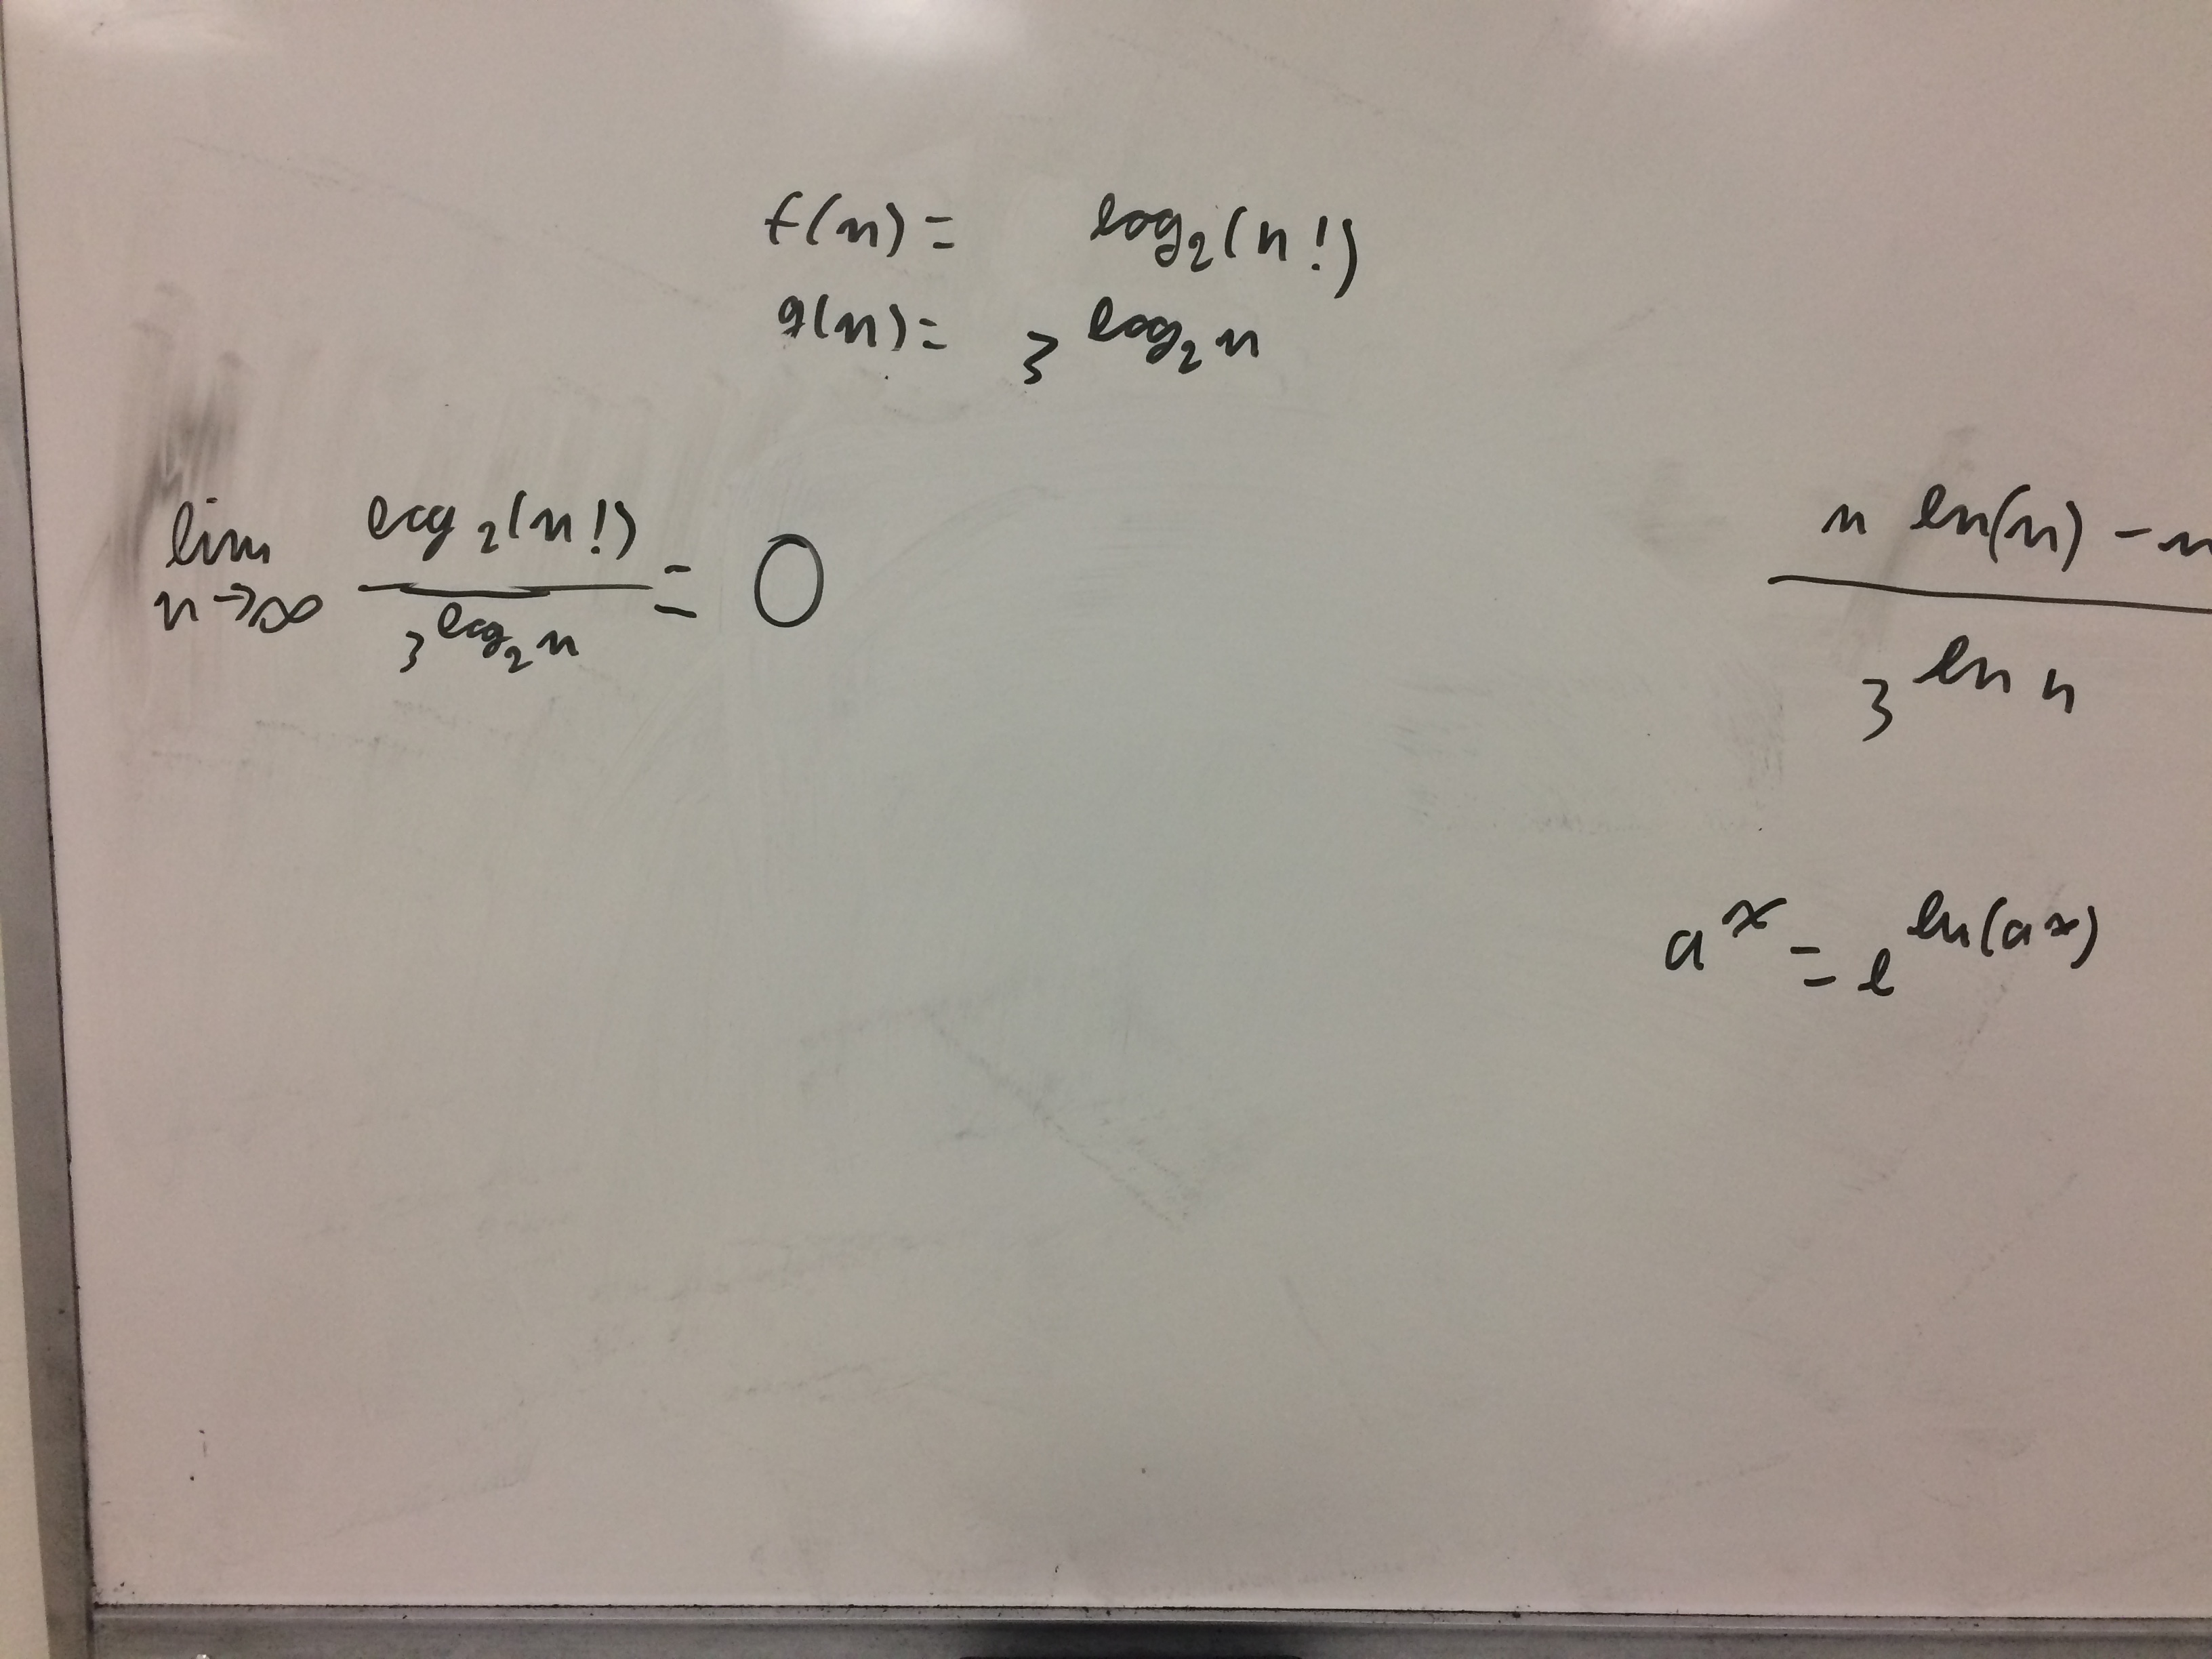 f(n) = log₂(n!)
g(n) = 3^{log₂ n}
lim_{n→∞} log₂(n!) / 3^{log₂ n} = 0
n ln(n) - n / 3^{ln n}
a^x = e^{ln(a^x)}